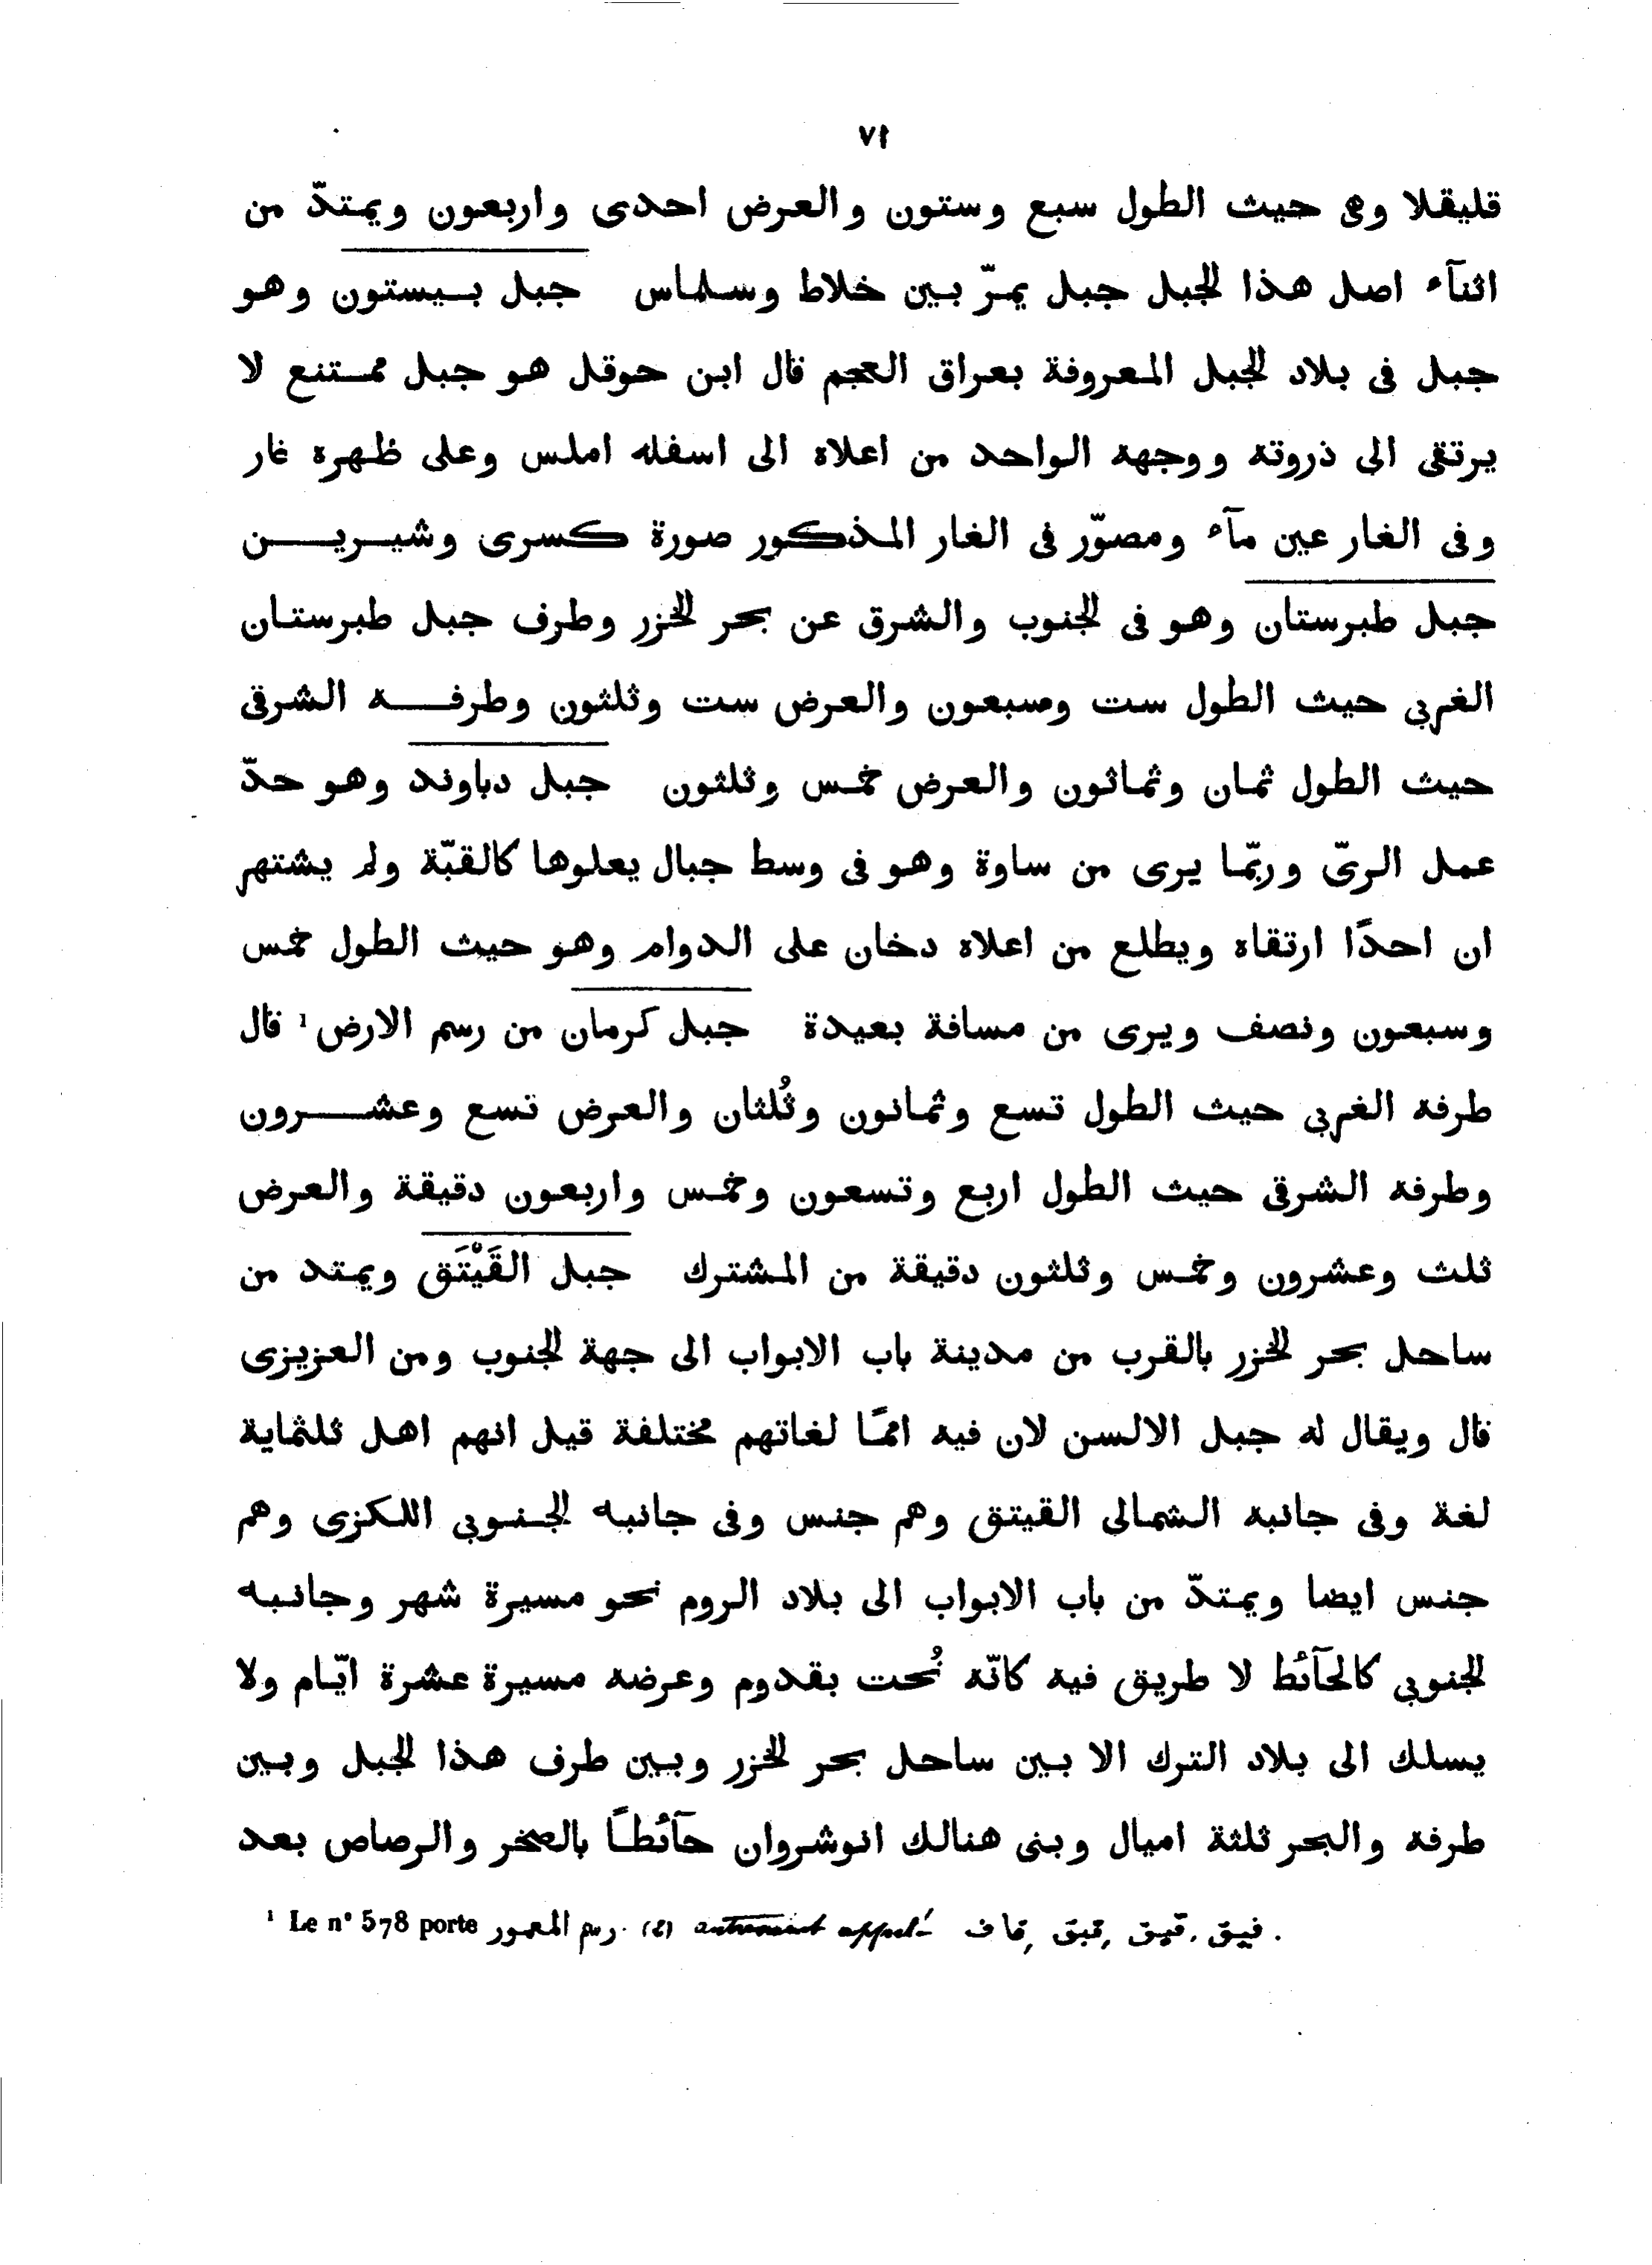 ٧١
قليقلا وهى حيث الطول سبع وستون والعرض احدى واربعون ويمتدّ من
اثنآء اصل هذا الجبل جبل يمرّ بين خلاط وسلماس جبل بيستون وهو
جبل فى بلاد الجبل المعروفة بعراق العجم قال ابن حوقل هو جبل ممتنع لا
يرتقى الى ذروته ووجهه الواحد من اعلاه الى اسفله املس وعلى ظهره غار
وفى الغار عين مآء ومصوّر فى الغار المذكور صورة كسرى وشيرين
جبل طبرستان وهو فى الجنوب والشرق عن بحر الخزر وطرف جبل طبرستان
الغربى حيث الطول ست وسبعون والعرض ست وثلثون وطرفه الشرقى
حيث الطول ثمان وثمانون والعرض خمس وثلثون جبل دباوند وهو حدّ
عمل الرىّ وربّما يرى من ساوة وهو فى وسط جبال يعلوها كالقبّة ولم يشتهر
ان احدًا ارتقاه ويطلع من اعلاه دخان على الدوام وهو حيث الطول خمس
وسبعون ونصف ويرى من مسافة بعيدة جبل كرمان من رسم الارض ¹ قال
طرفه الغربى حيث الطول تسع وثمانون وثُلثان والعرض تسع وعشرون
وطرفه الشرقى حيث الطول اربع وتسعون وخمس واربعون دقيقة والعرض
ثلث وعشرون وخمس وثلثون دقيقة من المشترك جبل القَيْتَق ويمتد من
ساحل بحر الخزر بالقرب من مدينة باب الابواب الى جهة الجنوب ومن العزيزى
قال ويقال له جبل الالسن لان فيه اممًا لغاتهم مختلفة قيل انهم اهل ثلثماية
لغة وفى جانبه الشمالى القيتق وهم جنس وفى جانبه الجنوبى اللكزى وهم
جنس ايضا ويمتدّ من باب الابواب الى بلاد الروم نحو مسيرة شهر وجانبه
الجنوبى كالحآئط لا طريق فيه كانّه نُحت بقدوم وعرضه مسيرة عشرة ايّام ولا
يسلك الى بلاد الترك الا بين ساحل بحر الخزر وبين طرف هذا الجبل وبين
طرفه والبحر ثلثة اميال وبنى هنالك انوشروان حآئطًا بالصخر والرصاص بعد
¹ Le n° 578 porte رسم المعمور. (2) autrement appelé قاف, قبق, قيق, فيق.